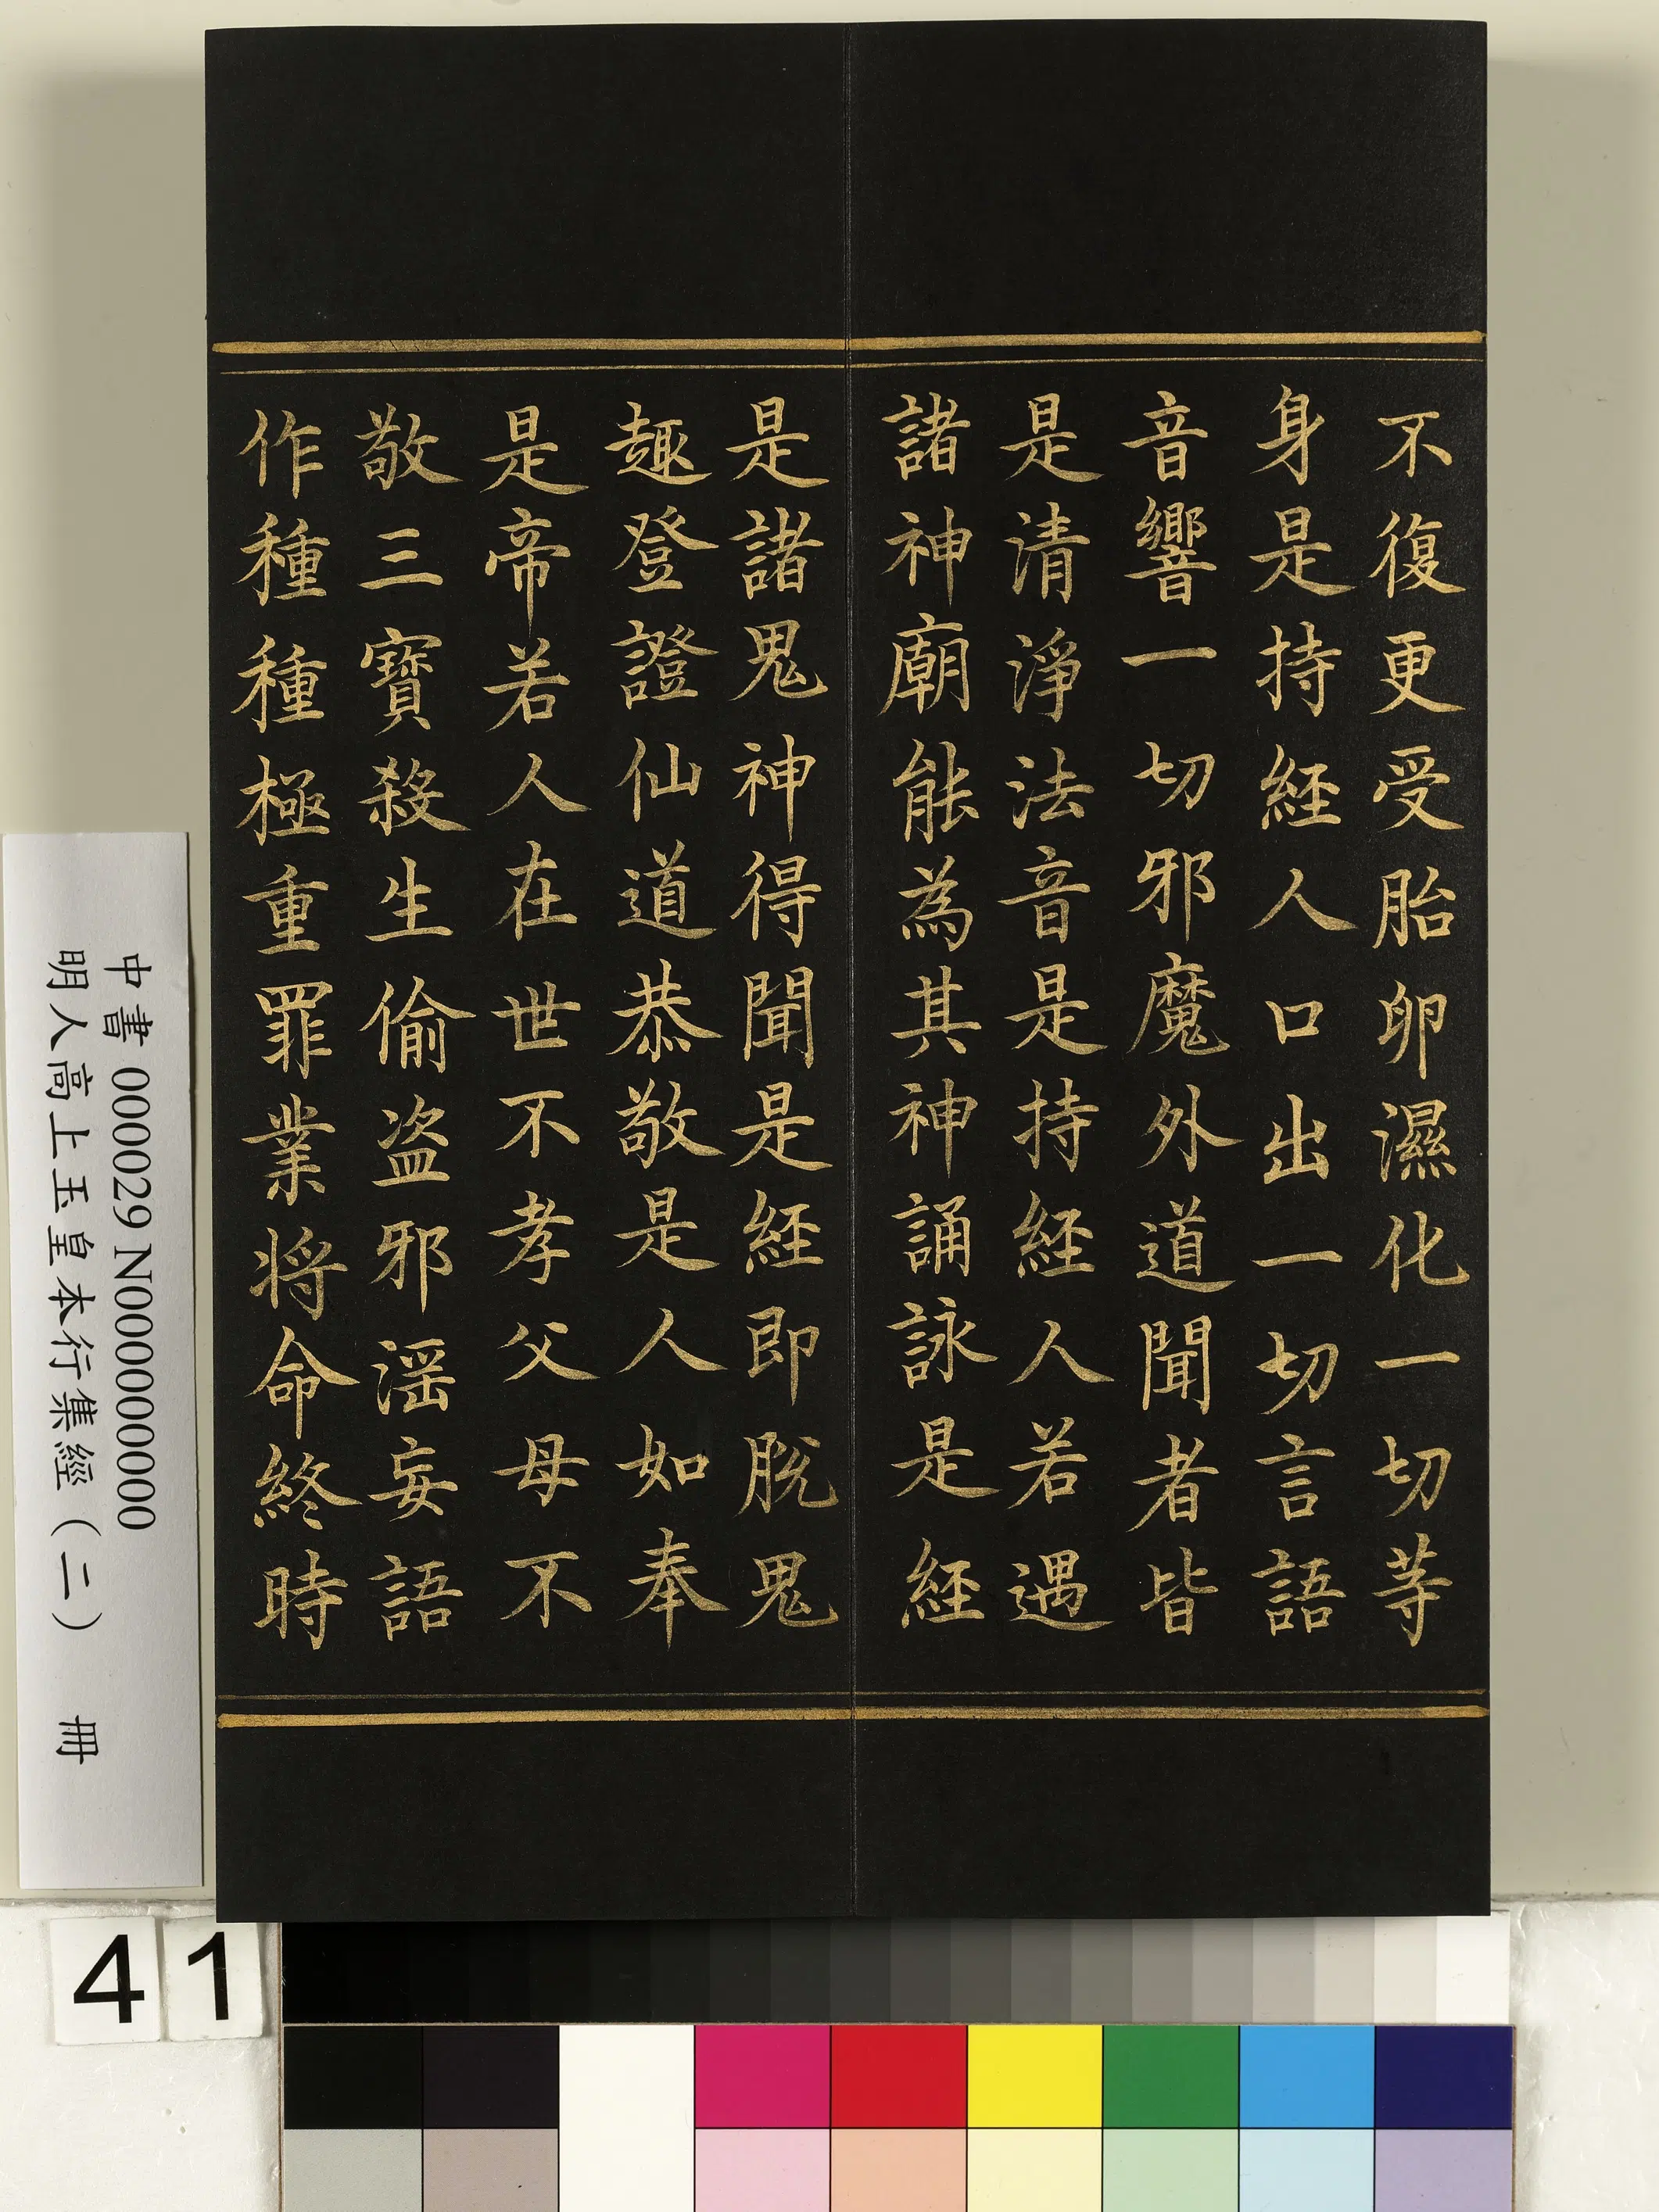 不復更受胎卵濕化一切等
身是持經人口出一切言語
音響一切邪魔外道聞者皆
是清淨法音是持經人若遇
諸神廟能為其神誦詠是經
是諸鬼神得聞是經即脫鬼
趣登證仙道恭敬是人如奉
是帝若人在世不孝父母不
敬三寶殺生偷盜邪淫妄語
作種種極重罪業將命終時
中書 000029 N000000000
明人高上玉皇本行集經（二） 冊
41